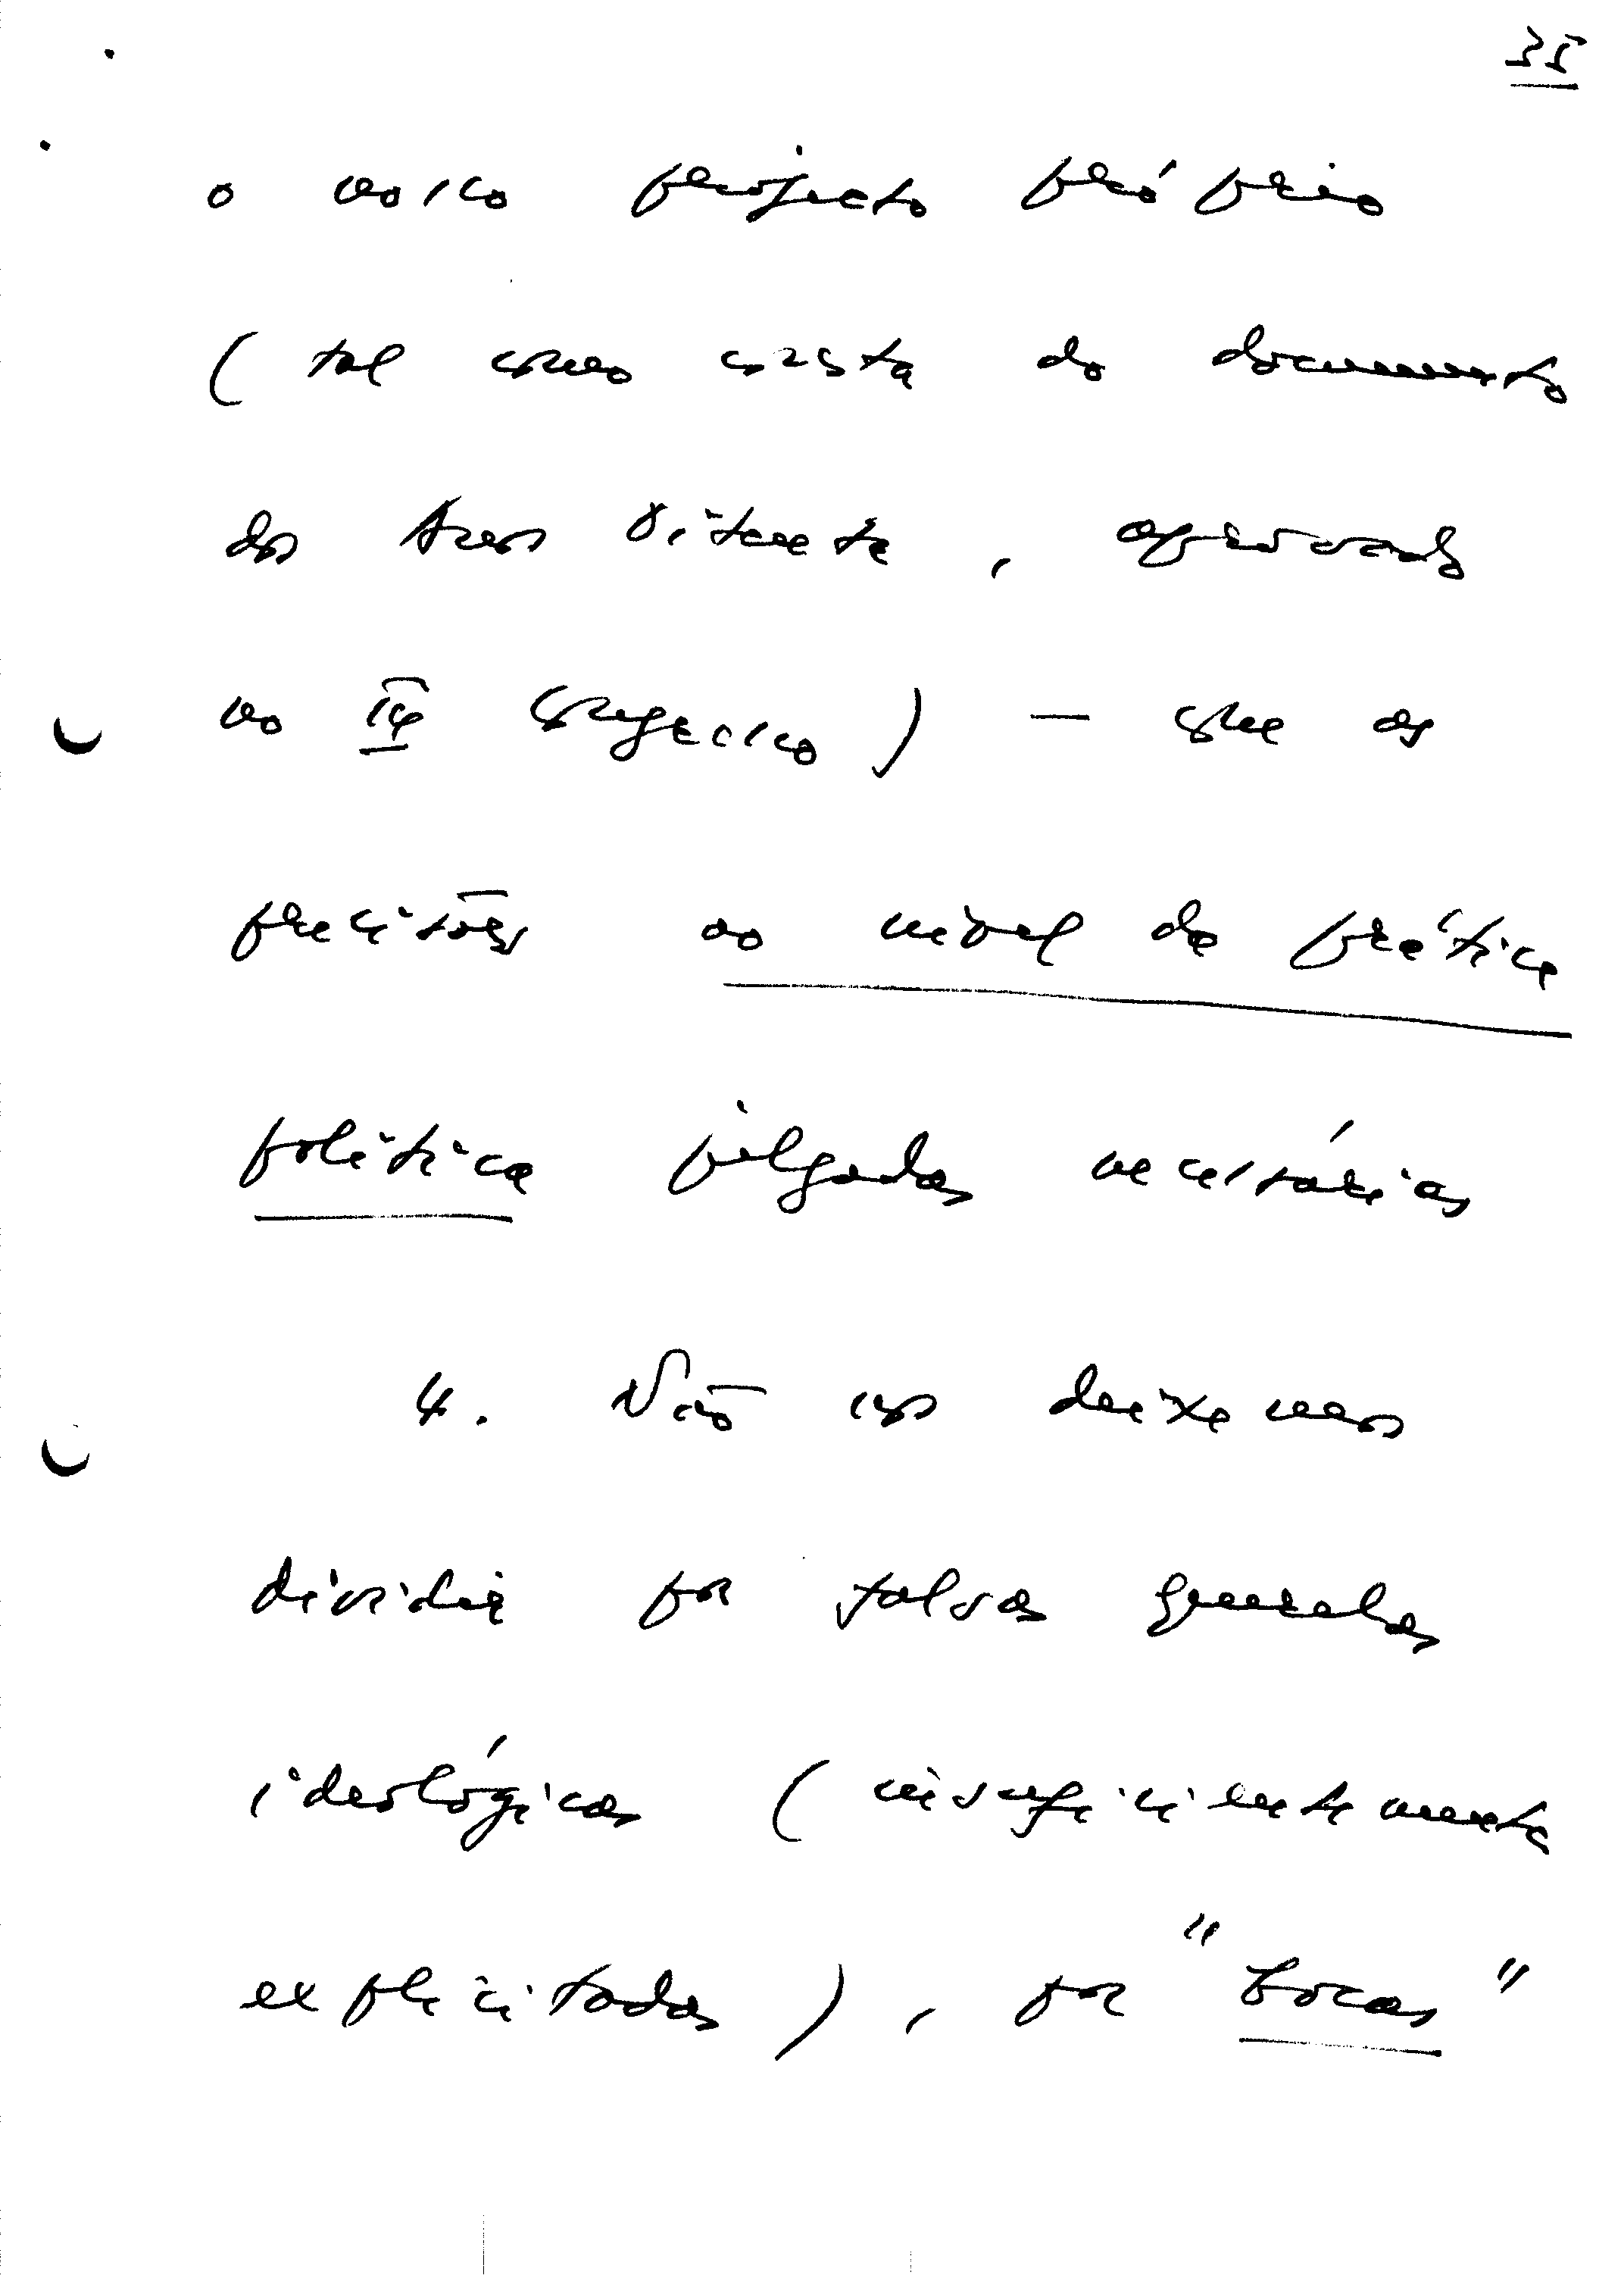 35
o nosso projecto próprio
(tal como consta do documento
dos Anos Oitenta, aprovado
no IV Congresso) — com as
precisões ao nível da prática
política julgadas necessárias
4. Não nos deixemos
dividir por falsas querelas
ideológicas (insuficientemente
explicitadas), por "bocas"